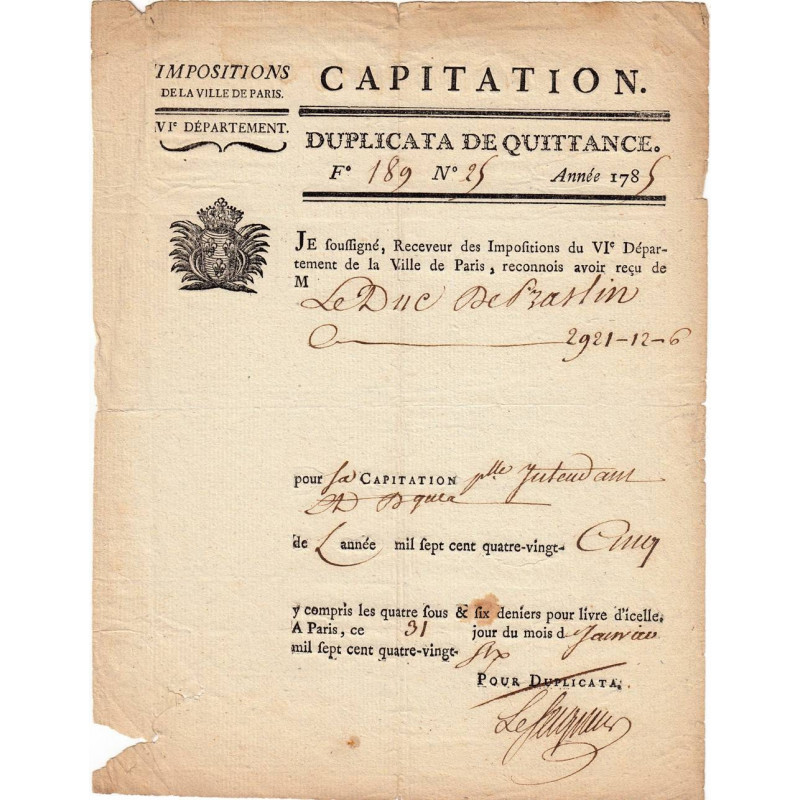 IMPOSITIONS
DE LA VILLE DE PARIS.
VIe DÉPARTEMENT.
CAPITATION.
DUPLICATA DE QUITTANCE.
Fo 189 No 25 Année 1785
JE souſſigné, Receveur des Impoſitions du VIe Dépar-
tement de la Ville de Paris, reconnois avoir reçu de
M
Le Duc De Praslin
2921-12-6
pour sa CAPITATION plle Intendant
de L'année mil ſept cent quatre-vingt- Cinq
y compris les quatre ſous & ſix deniers pour livre d'icelle,
A Paris, ce 31 jour du mois d Janvier
mil ſept cent quatre-vingt- Six
POUR DUPLICATA.